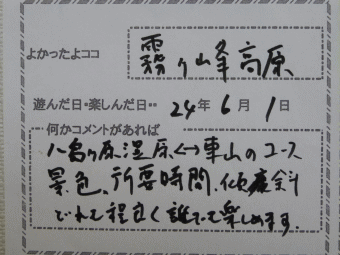 よかったよココ
霧ヶ峰高原
遊んだ日・楽しんだ日・・ 24年 6月 1日
何かコメントがあれば
八島ヶ原湿原↔車山のコース
景色、所要時間、傾斜
どれも程良く誰でも楽しめます。